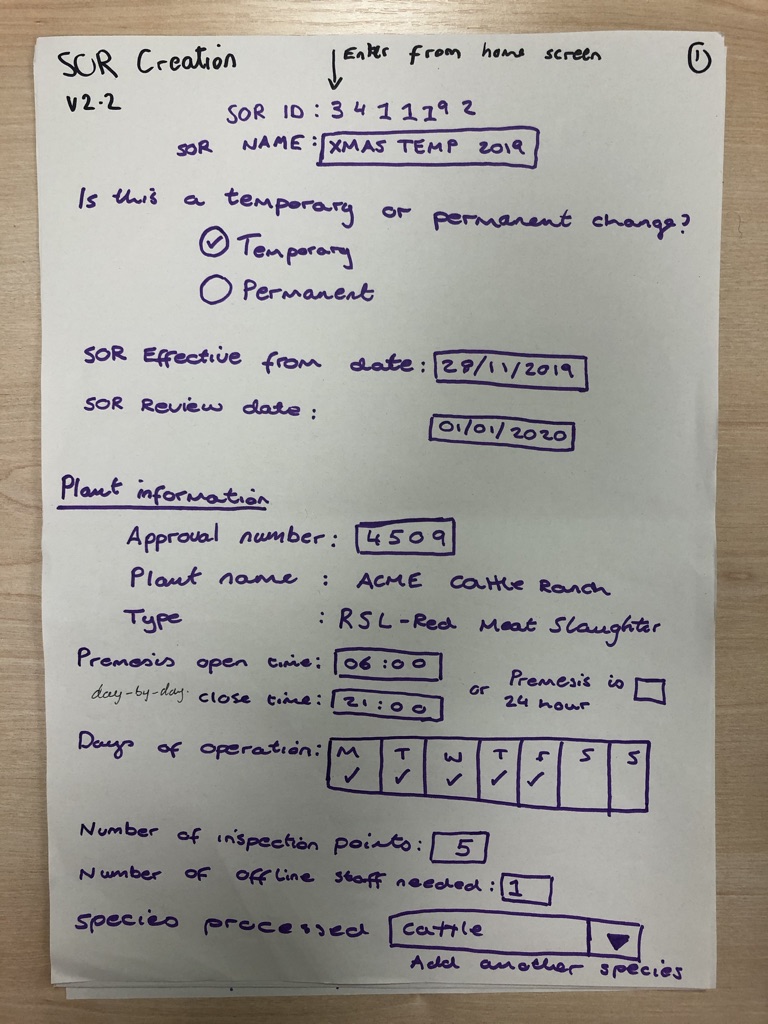 SOR Creation
↓ Enter from home screen
①
V2.2
SOR ID: 3411192
SOR NAME: XMAS TEMP 2019
Is this a temporary or permanent change?
Temporary
Permanent
SOR Effective from date: 28/11/2019
SOR Review date:
01/01/2020
Plant information
Approval number: 4509
Plant name : ACME Cattle Ranch
Type : RSL-Red Meat Slaughter
Premesis open time: 06:00
or Premesis is 24 hour
day-by-day. close time: 21:00
Days of operation: M T W T F S S
✓ ✓ ✓ ✓ ✓
Number of inspection points: 5
Number of offline staff needed: 1
Species processed cattle ▼
Add another species